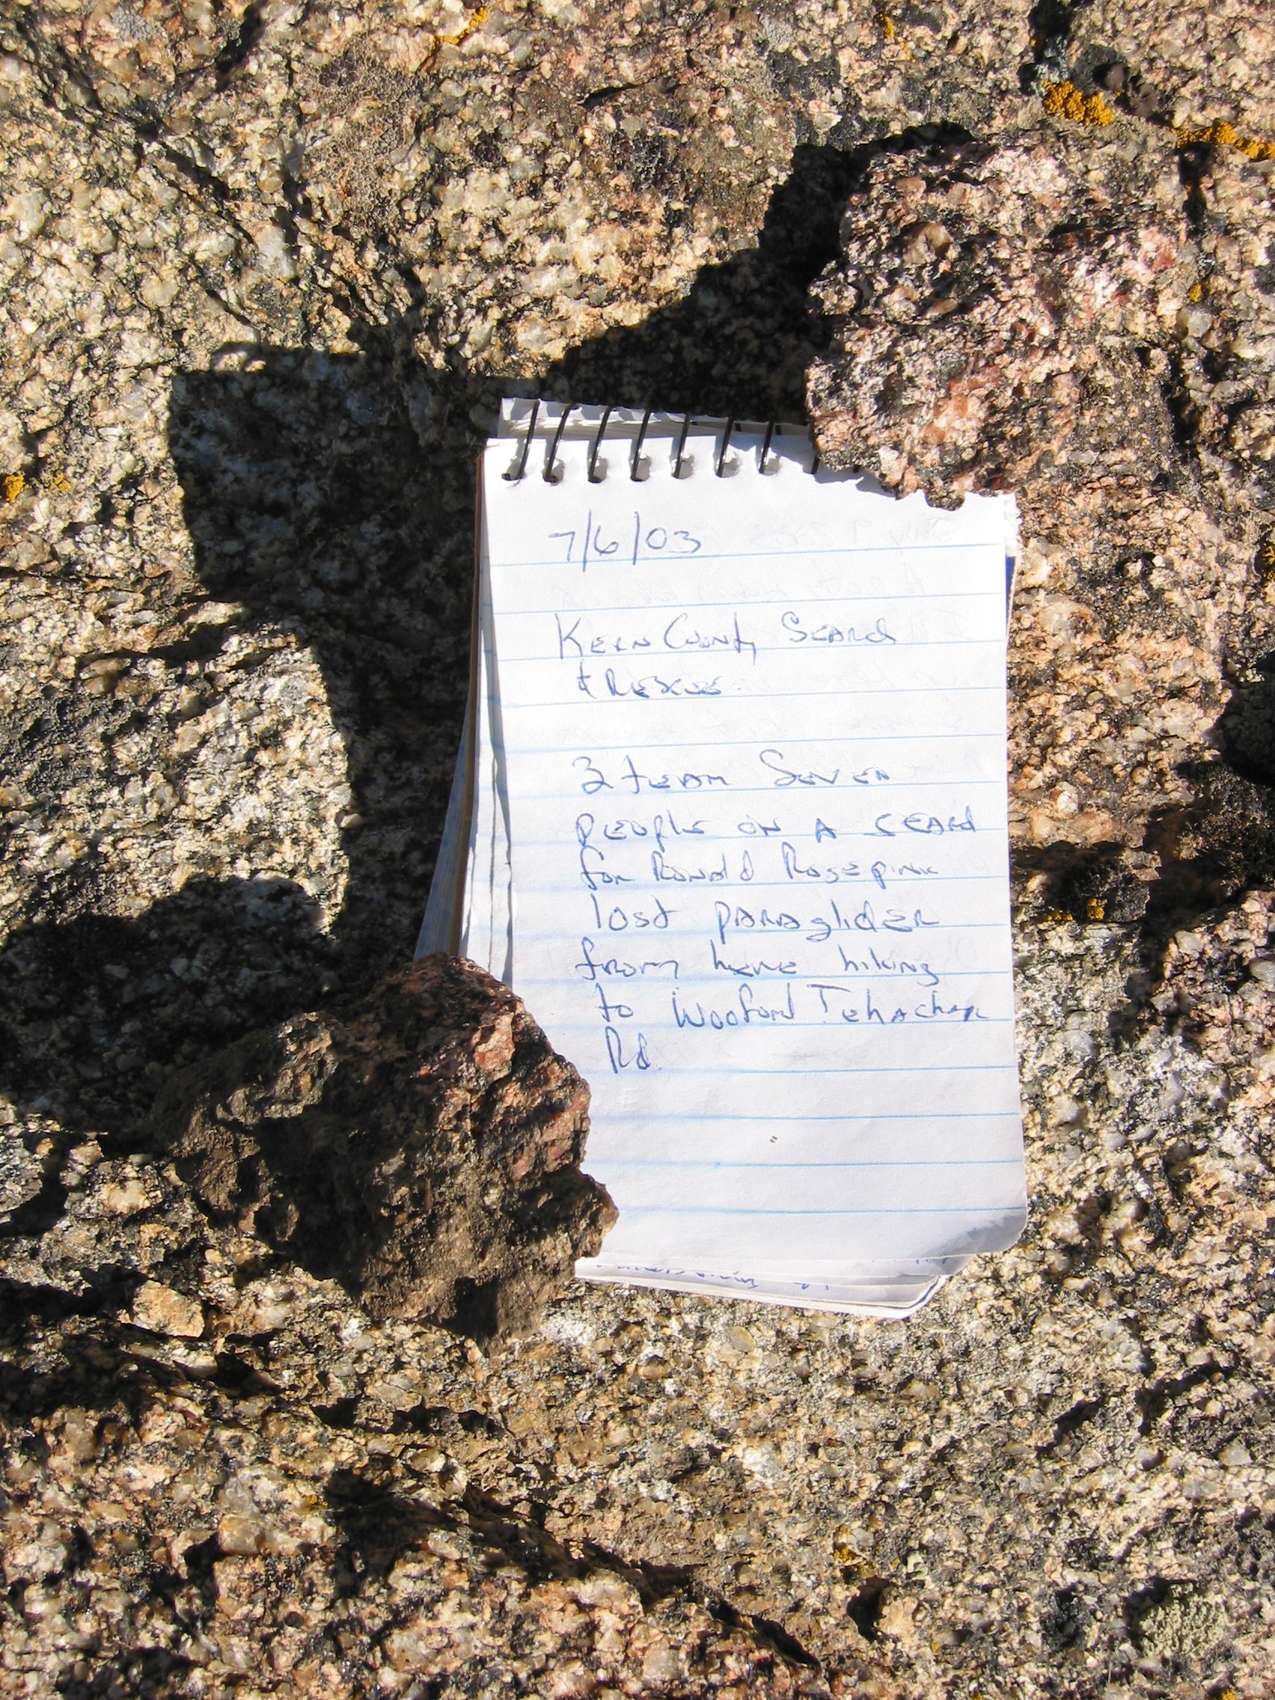 7/6/03
Kern County Search
& Rescue
2 team Seven
people on a search
for Ronald Rosepink
lost paraglider
from here hiking
to Wooford Tehachapi
Rd.